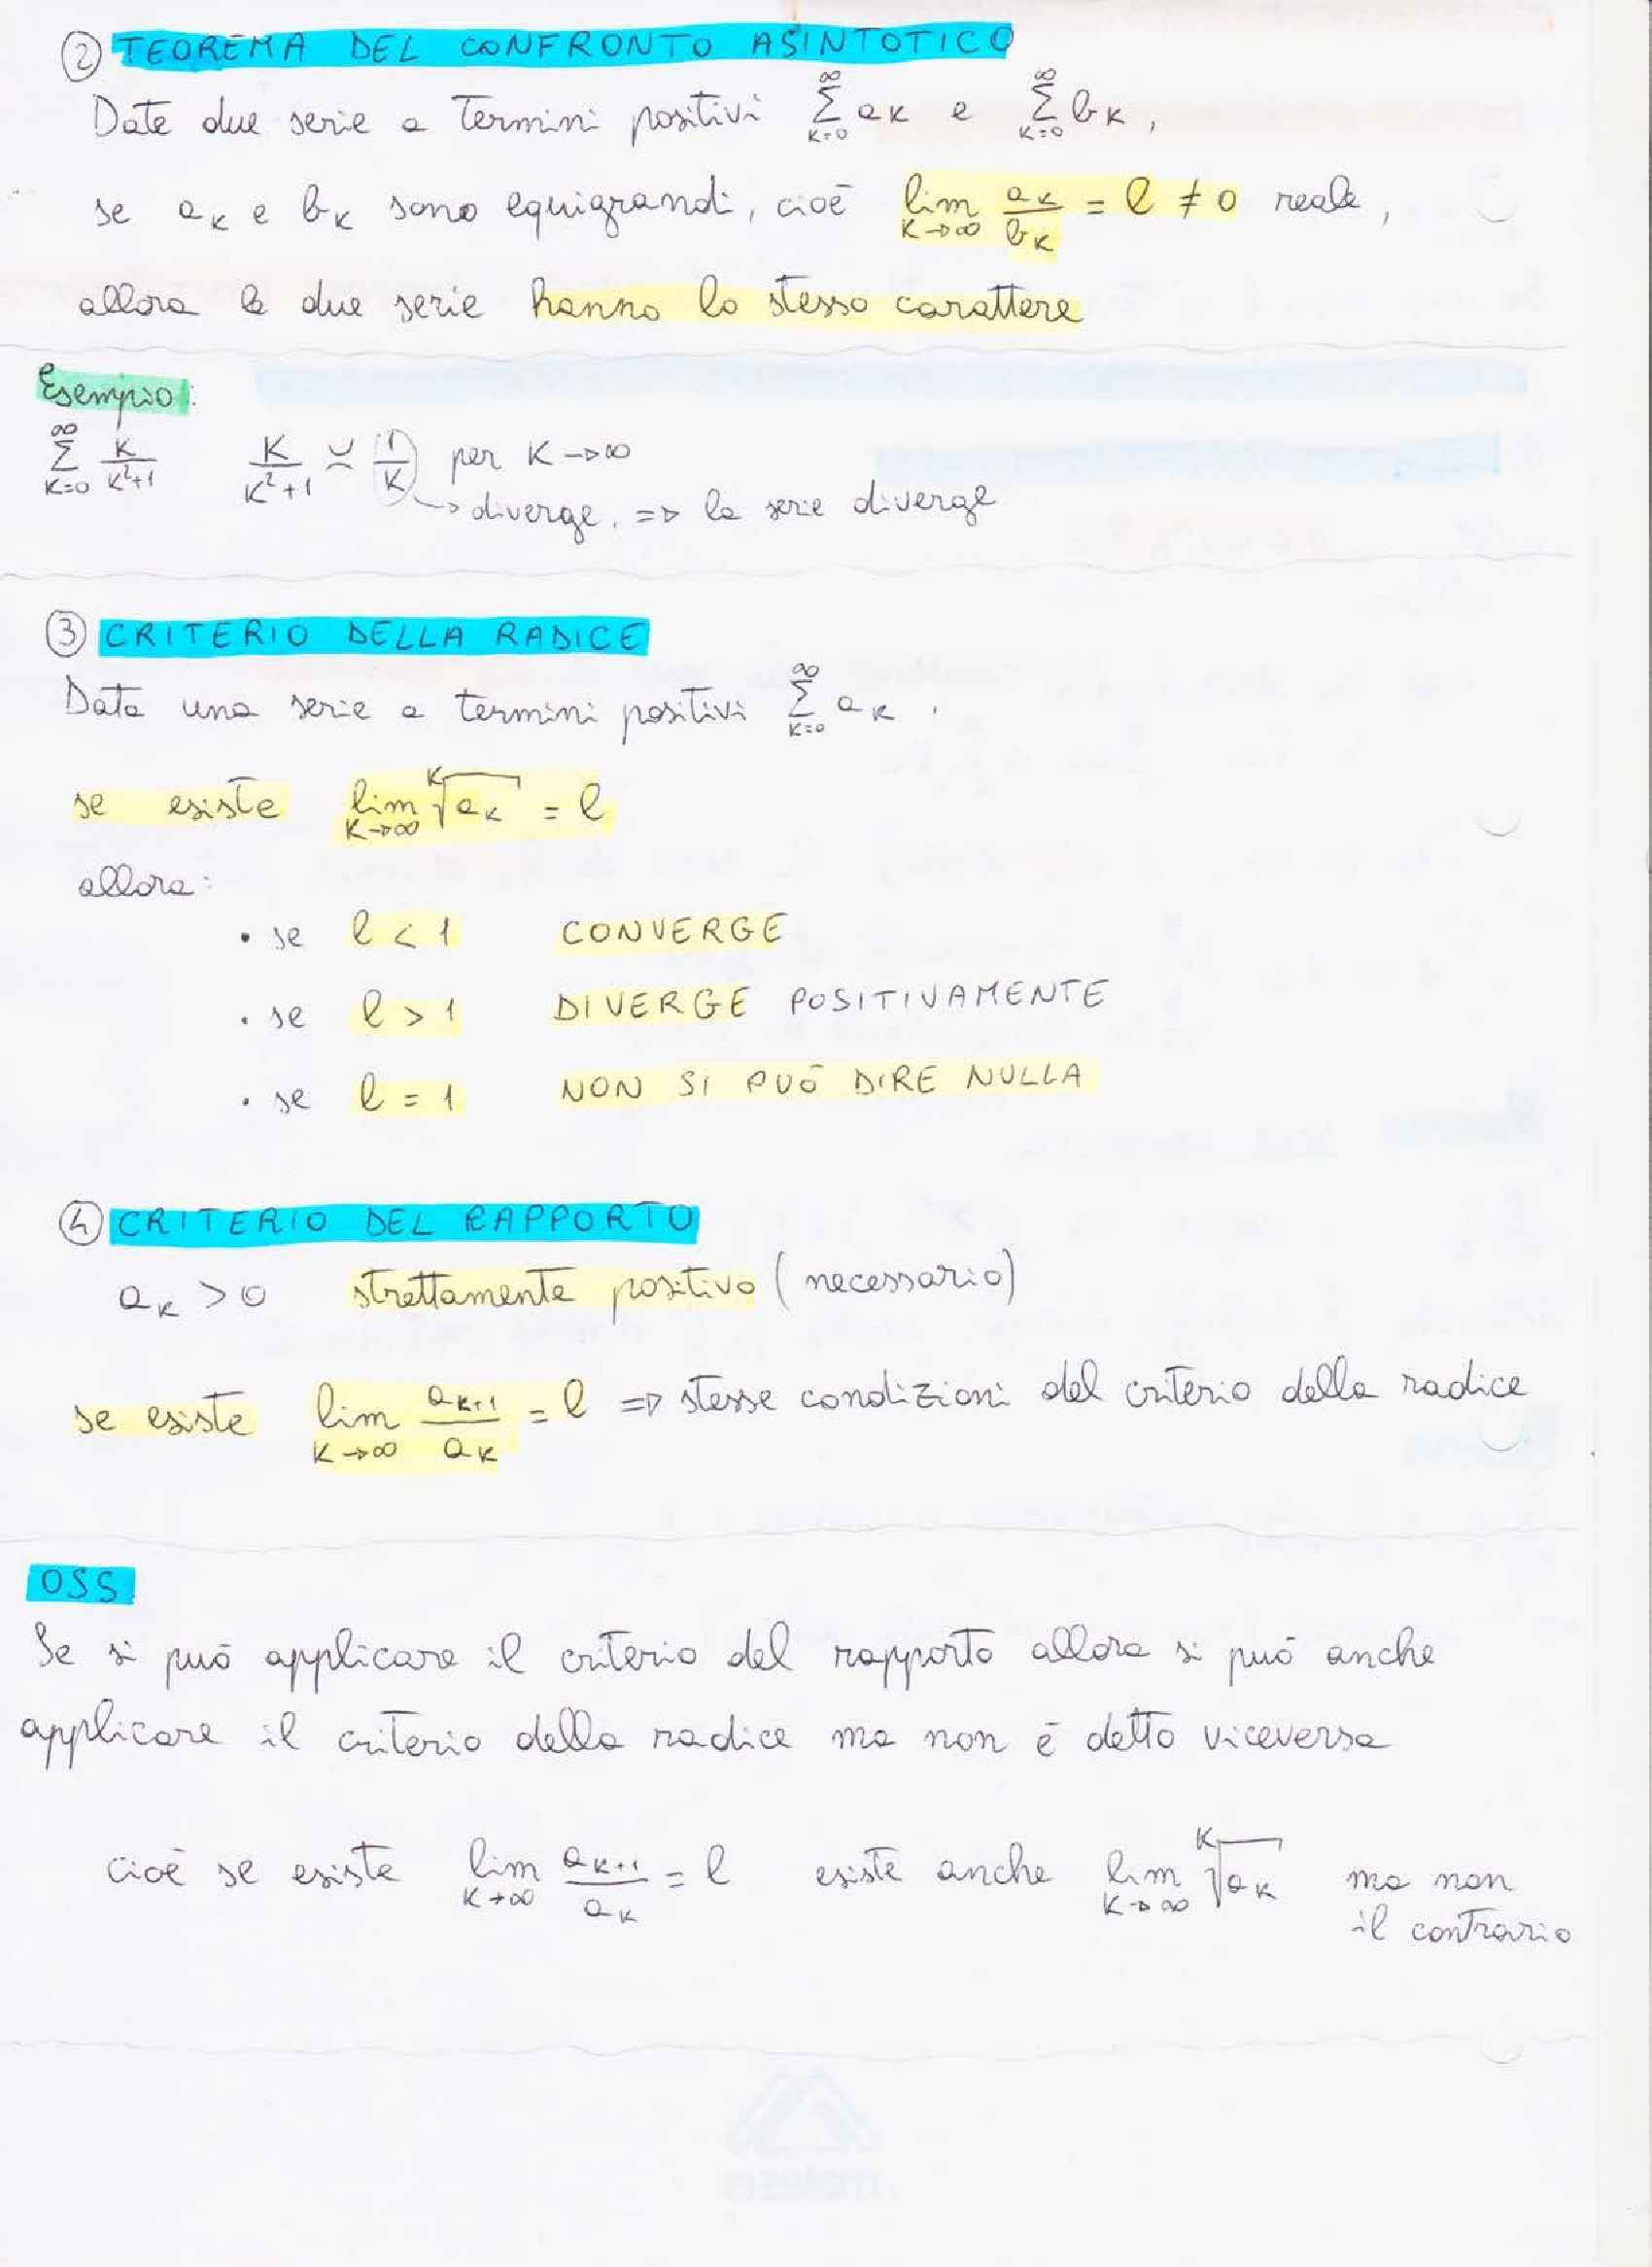 ② TEOREMA DEL CONFRONTO ASINTOTICO
Date due serie a termini positivi ∞ Σ k=0 ak e ∞ Σ k=0 bk,
se ak e bk sono equigrandi, cioè lim k→∞ ak/bk = l ≠ 0 reale,
allora le due serie hanno lo stesso carattere
Esempio:
∞ Σ k=0 k/(k²+1) k/(k²+1) ≍ 1/k per k→∞
→ diverge. ⇒ la serie diverge
③ CRITERIO DELLA RADICE
Data una serie a termini positivi ∞ Σ k=0 ak.
se esiste lim k→∞ ᵏ√ak = l
allora:
• se l < 1 CONVERGE
• se l > 1 DIVERGE POSITIVAMENTE
• se l = 1 NON SI PUÒ DIRE NULLA
④ CRITERIO DEL RAPPORTO
ak > 0 strettamente positivo (necessario)
se esiste lim k→∞ ak+1/ak = l ⇒ stesse condizioni del criterio della radice
OSS.
Se si può applicare il criterio del rapporto allora si può anche
applicare il criterio della radice ma non è detto viceversa
cioè se esiste lim k→∞ ak+1/ak = l esiste anche lim k→∞ ᵏ√ak ma non
il contrario